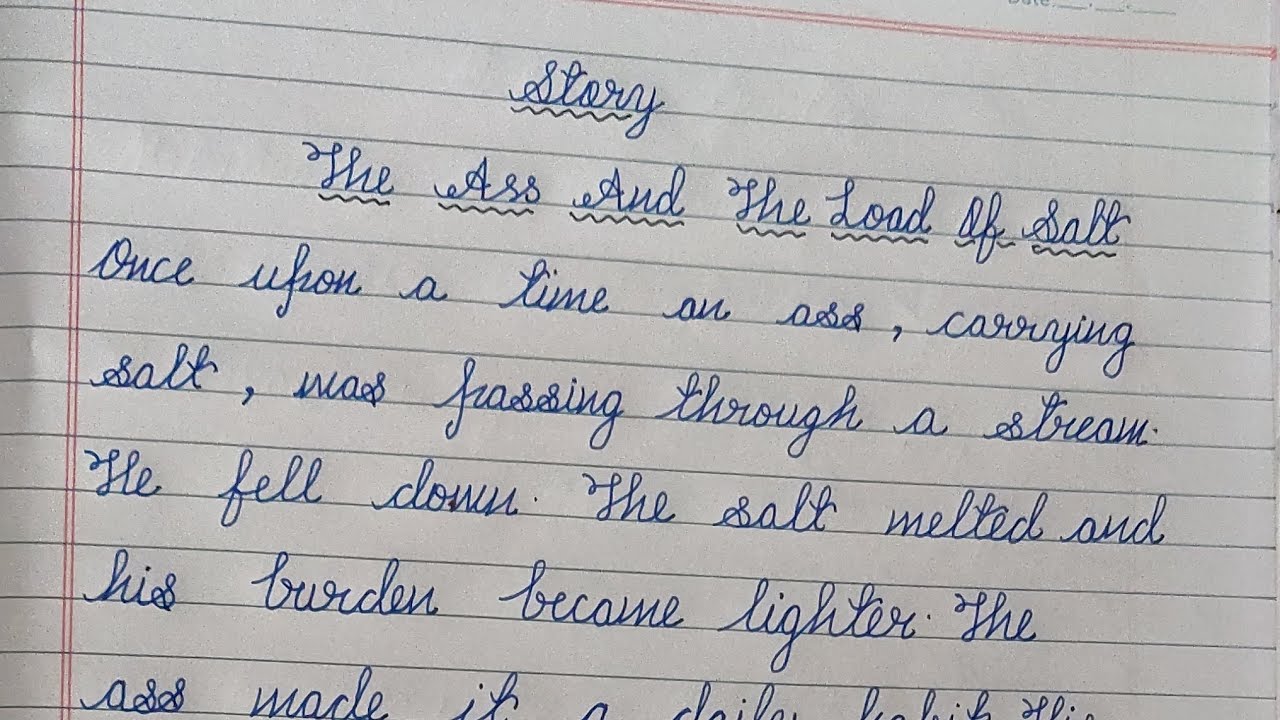 Date
Story
The Ass And The Load Of Salt
Once upon a time an ass, carrying
salt, was passing through a stream.
He fell down. The salt melted and
his burden became lighter. The
ass made it a daily habit. This